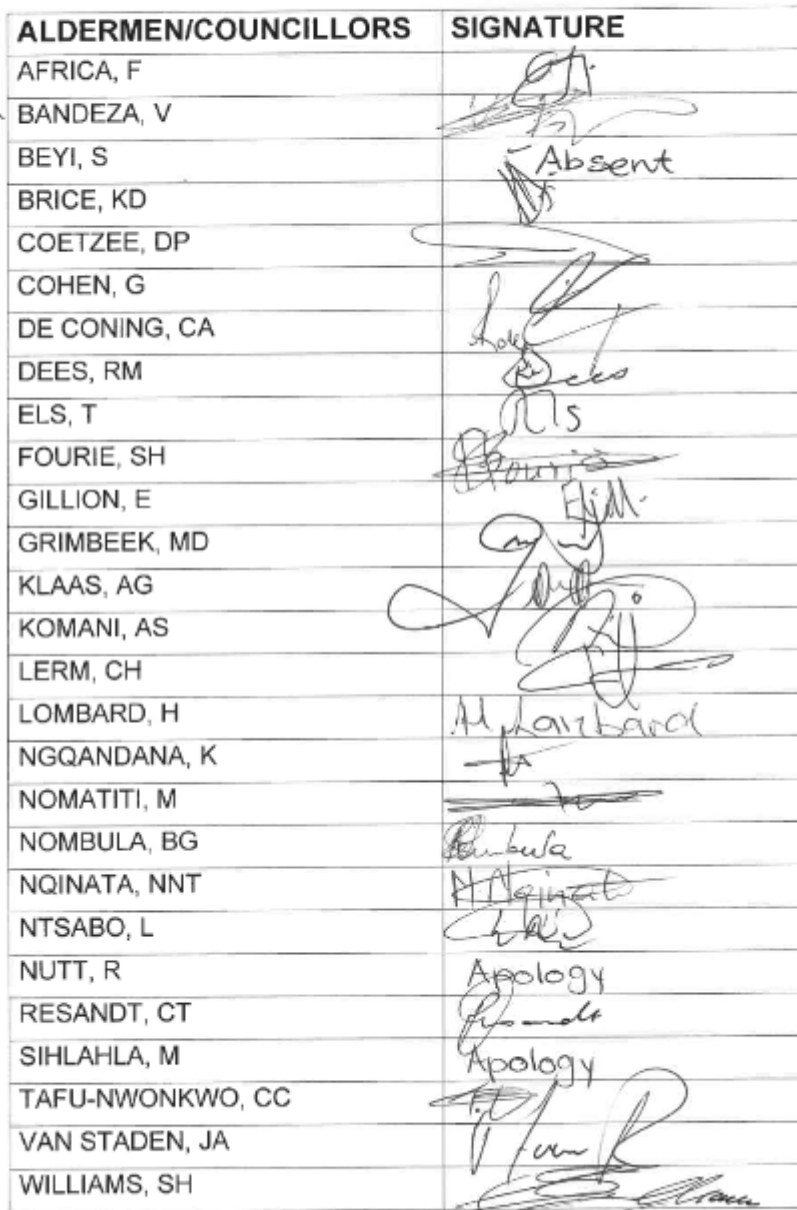 ALDERMEN/COUNCILLORS SIGNATURE
AFRICA, F
BANDEZA, V
BEYI, S Absent
BRICE, KD
COETZEE, DP
COHEN, G
DE CONING, CA
DEES, RM Dees
ELS, T Els
FOURIE, SH SFourie
GILLION, E
GRIMBEEK, MD
KLAAS, AG
KOMANI, AS
LERM, CH
LOMBARD, H H Lombard
NGQANDANA, K
NOMATITI, M
NOMBULA, BG
NQINATA, NNT N Nqinata
NTSABO, L
NUTT, R Apology
RESANDT, CT Resandt
SIHLAHLA, M Apology
TAFU-NWONKWO, CC
VAN STADEN, JA
WILLIAMS, SH